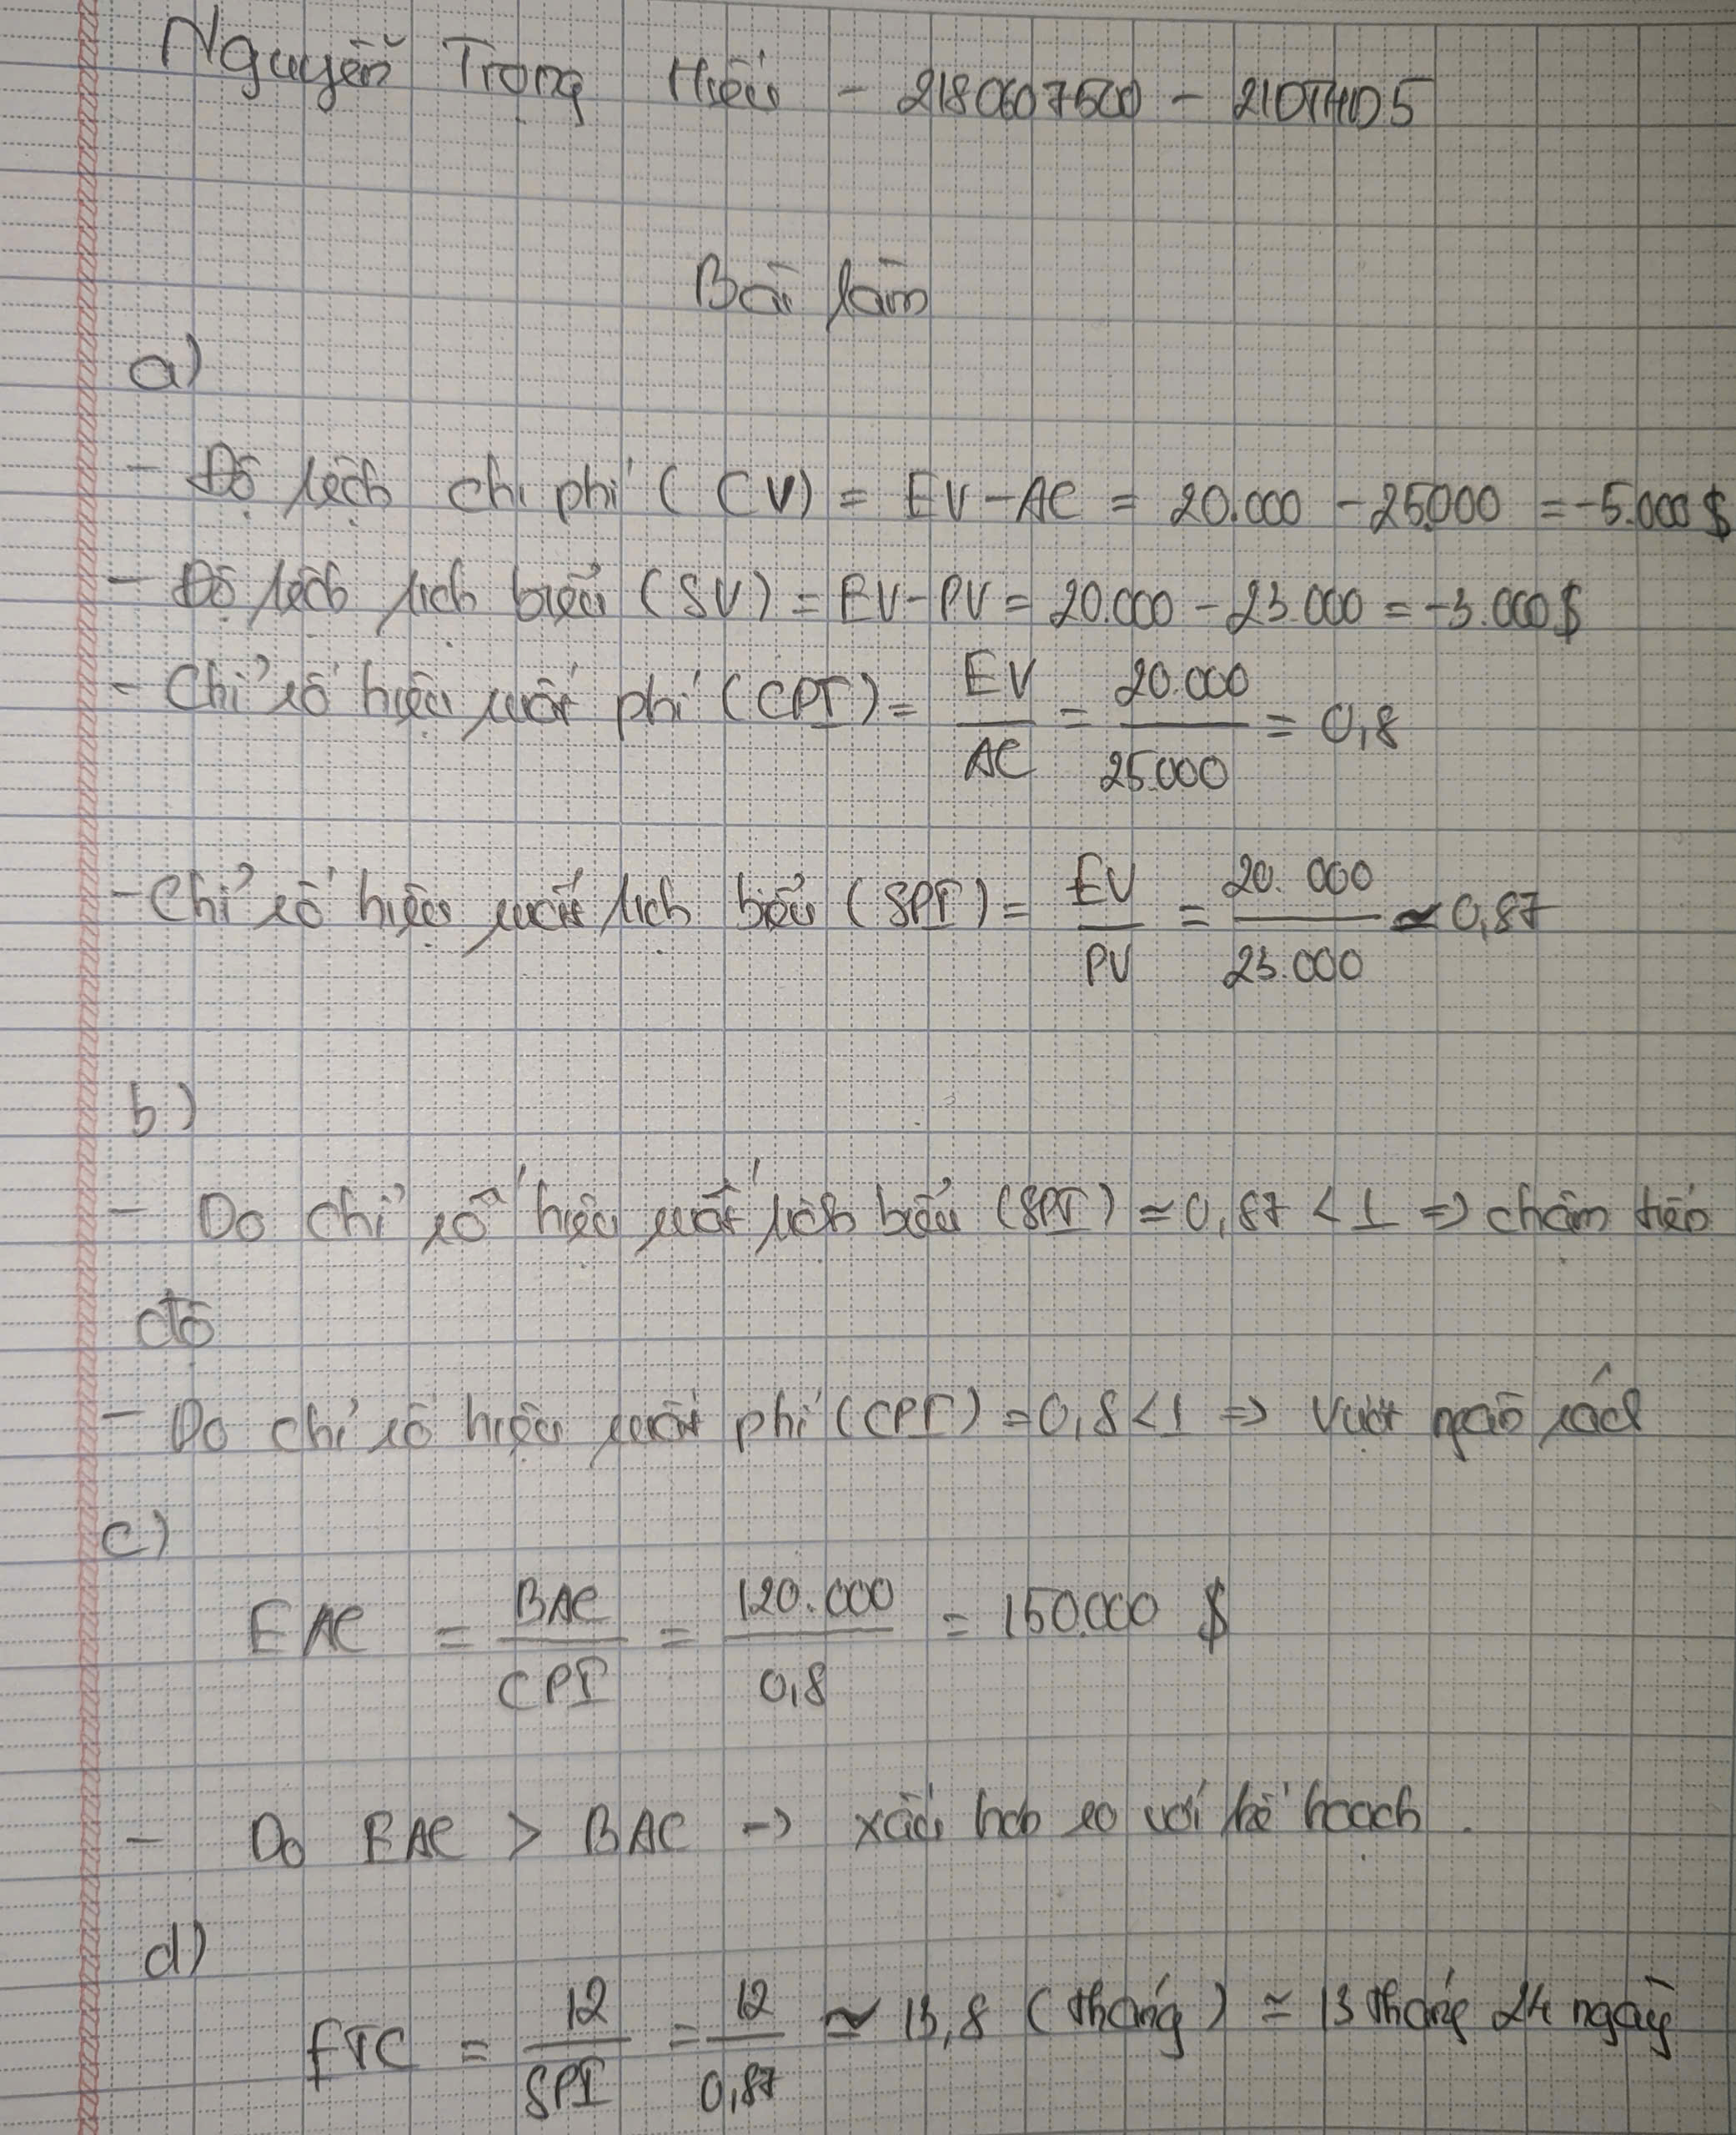 Nguyễn Trọng Hiếu - 2180607500 - 21DTHD5
Bài làm
a)
- Độ lệch chi phí (CV) = EV - AC = 20.000 - 25.000 = -5.000 $
- Độ lệch lịch biểu (SV) = EV - PV = 20.000 - 23.000 = -3.000 $
- Chỉ số hiệu suất phí (CPI) = EV / AC = 20.000 / 25.000 = 0,8
- Chỉ số hiệu suất lịch biểu (SPI) = EV / PV = 20.000 / 23.000 ≃ 0,87
b)
- Do chỉ số hiệu suất lịch biểu (SPI) ≃ 0,87 < 1 => chậm tiến
độ
- Do chỉ số hiệu suất phí (CPI) = 0,8 < 1 => vượt ngân sách
c)
EAC = BAC / CPI = 120.000 / 0,8 = 150.000 $
- Do EAC > BAC -> xấu hơn so với kế hoạch.
d)
ETC = 12 / SPI = 12 / 0,87 ≃ 13,8 (tháng) ≃ 13 tháng 24 ngày